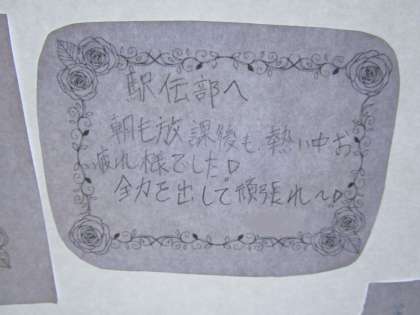 駅伝部へ
朝も放課後も、熱い中お
疲れ様でした♡
全力を出して頑張れ〜♡